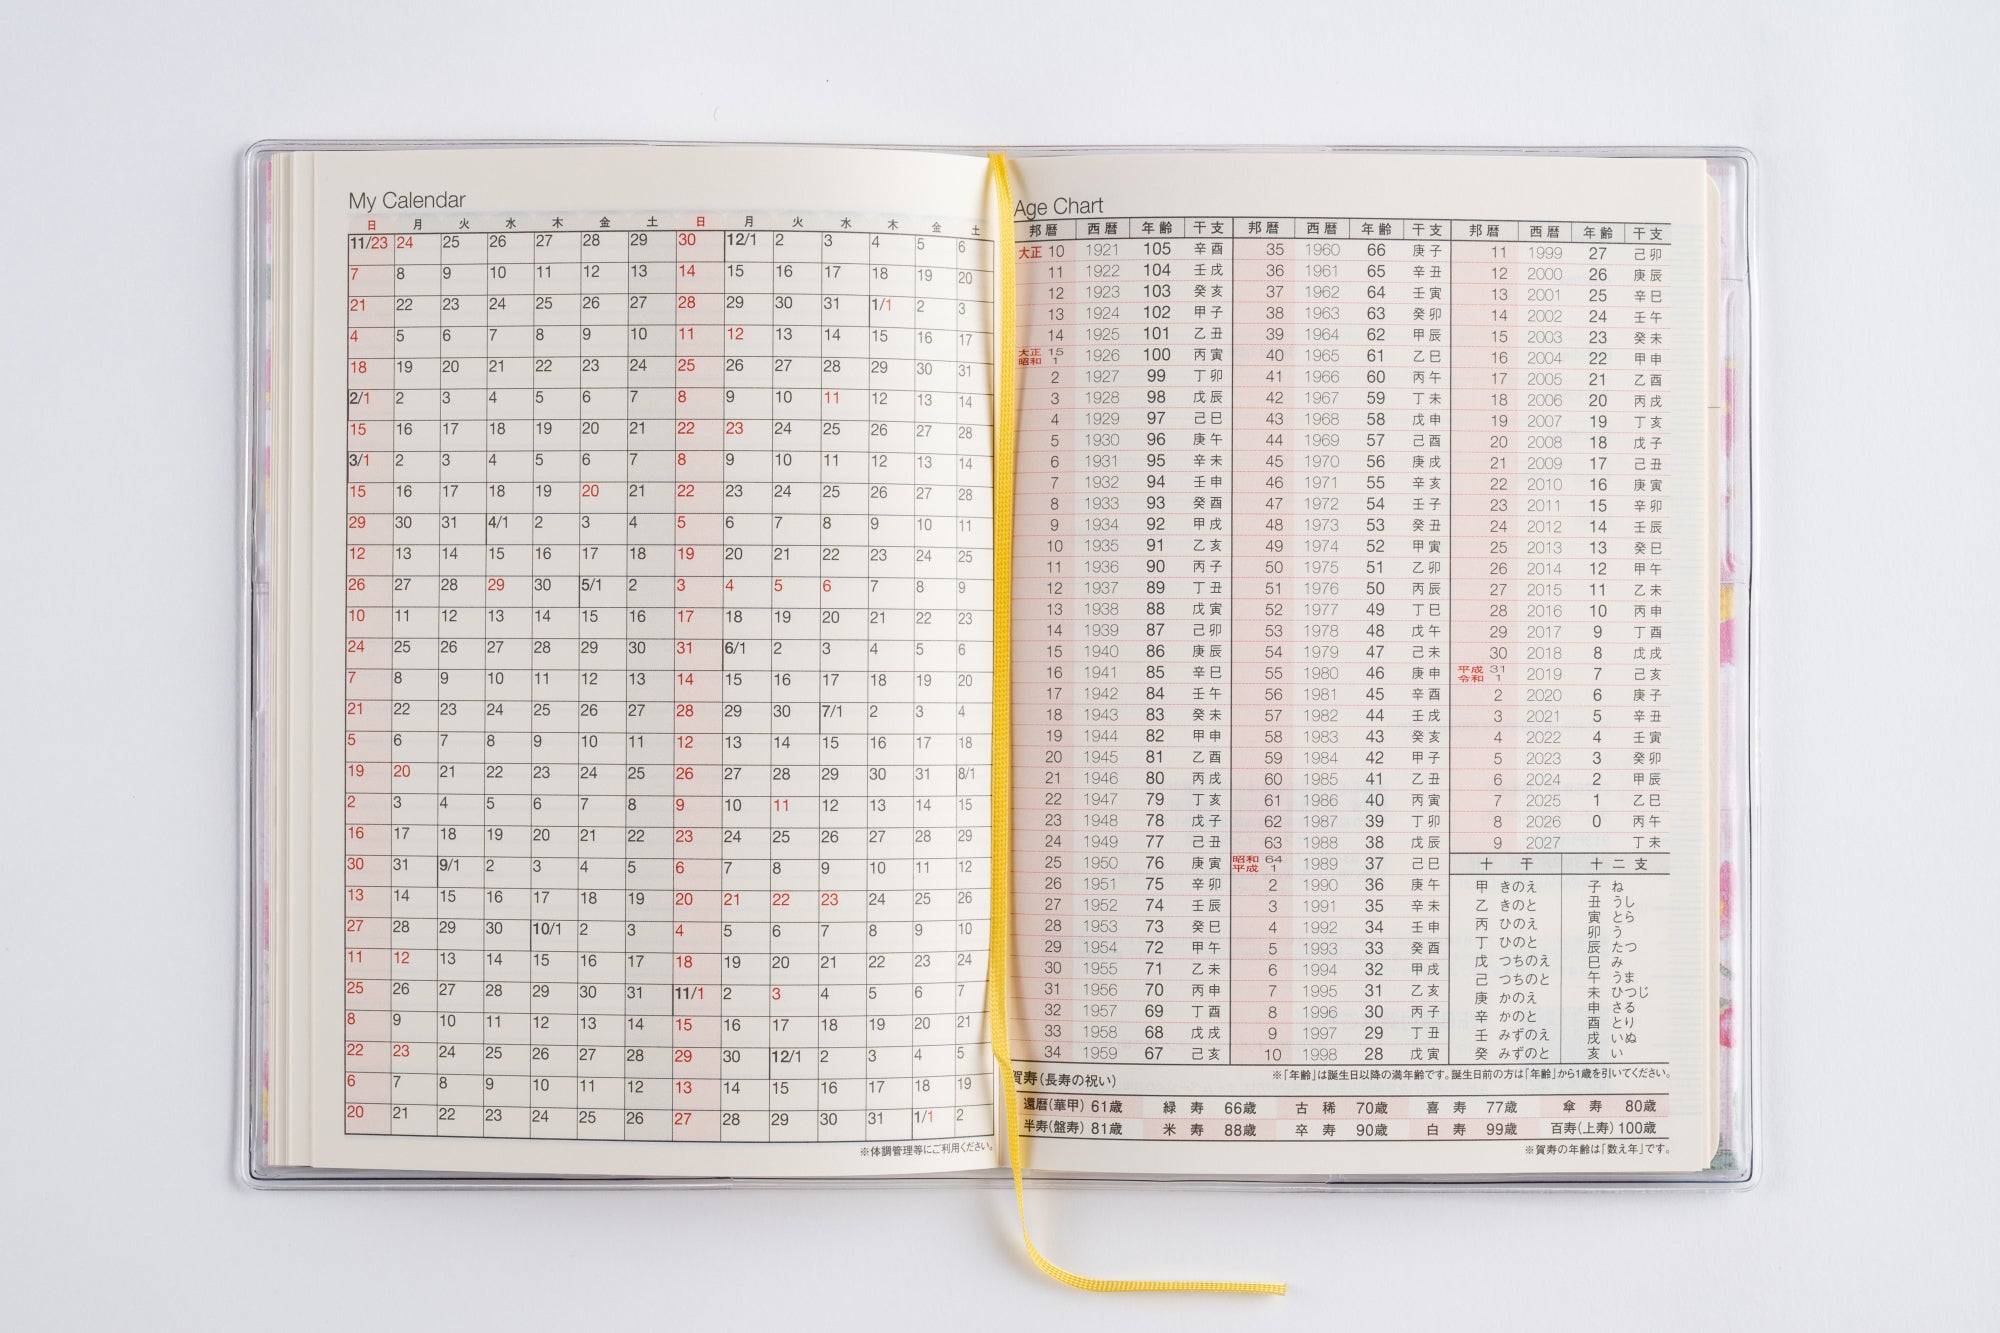 My Calendar
日 月 火 水 木 金 土 日 月 火 水 木 金 土
11/23 24 25 26 27 28 29 30 12/1 2 3 4 5 6
7 8 9 10 11 12 13 14 15 16 17 18 19 20
21 22 23 24 25 26 27 28 29 30 31 1/1 2 3
4 5 6 7 8 9 10 11 12 13 14 15 16 17
18 19 20 21 22 23 24 25 26 27 28 29 30 31
2/1 2 3 4 5 6 7 8 9 10 11 12 13 14
15 16 17 18 19 20 21 22 23 24 25 26 27 28
3/1 2 3 4 5 6 7 8 9 10 11 12 13 14
15 16 17 18 19 20 21 22 23 24 25 26 27 28
29 30 31 4/1 2 3 4 5 6 7 8 9 10 11
12 13 14 15 16 17 18 19 20 21 22 23 24 25
26 27 28 29 30 5/1 2 3 4 5 6 7 8 9
10 11 12 13 14 15 16 17 18 19 20 21 22 23
24 25 26 27 28 29 30 31 6/1 2 3 4 5 6
7 8 9 10 11 12 13 14 15 16 17 18 19 20
21 22 23 24 25 26 27 28 29 30 7/1 2 3 4
5 6 7 8 9 10 11 12 13 14 15 16 17 18
19 20 21 22 23 24 25 26 27 28 29 30 31 8/1
2 3 4 5 6 7 8 9 10 11 12 13 14 15
16 17 18 19 20 21 22 23 24 25 26 27 28 29
30 31 9/1 2 3 4 5 6 7 8 9 10 11 12
13 14 15 16 17 18 19 20 21 22 23 24 25 26
27 28 29 30 10/1 2 3 4 5 6 7 8 9 10
11 12 13 14 15 16 17 18 19 20 21 22 23 24
25 26 27 28 29 30 31 11/1 2 3 4 5 6 7
8 9 10 11 12 13 14 15 16 17 18 19 20 21
22 23 24 25 26 27 28 29 30 12/1 2 3 4 5
6 7 8 9 10 11 12 13 14 15 16 17 18 19
20 21 22 23 24 25 26 27 28 29 30 31 1/1 2
※体調管理等にご利用ください。
Age Chart
邦暦 西暦 年齢 干支 邦暦 西暦 年齢 干支 邦暦 西暦 年齢 干支
大正 10 1921 105 辛酉 35 1960 66 庚子 11 1999 27 己卯
11 1922 104 壬戌 36 1961 65 辛丑 12 2000 26 庚辰
12 1923 103 癸亥 37 1962 64 壬寅 13 2001 25 辛巳
13 1924 102 甲子 38 1963 63 癸卯 14 2002 24 壬午
14 1925 101 乙丑 39 1964 62 甲辰 15 2003 23 癸未
大正 15 昭和 1 1926 100 丙寅 40 1965 61 乙巳 16 2004 22 甲申
2 1927 99 丁卯 41 1966 60 丙午 17 2005 21 乙酉
3 1928 98 戊辰 42 1967 59 丁未 18 2006 20 丙戌
4 1929 97 己巳 43 1968 58 戊申 19 2007 19 丁亥
5 1930 96 庚午 44 1969 57 己酉 20 2008 18 戊子
6 1931 95 辛未 45 1970 56 庚戌 21 2009 17 己丑
7 1932 94 壬申 46 1971 55 辛亥 22 2010 16 庚寅
8 1933 93 癸酉 47 1972 54 壬子 23 2011 15 辛卯
9 1934 92 甲戌 48 1973 53 癸丑 24 2012 14 壬辰
10 1935 91 乙亥 49 1974 52 甲寅 25 2013 13 癸巳
11 1936 90 丙子 50 1975 51 乙卯 26 2014 12 甲午
12 1937 89 丁丑 51 1976 50 丙辰 27 2015 11 乙未
13 1938 88 戊寅 52 1977 49 丁巳 28 2016 10 丙申
14 1939 87 己卯 53 1978 48 戊午 29 2017 9 丁酉
15 1940 86 庚辰 54 1979 47 己未 30 2018 8 戊戌
16 1941 85 辛巳 55 1980 46 庚申 平成 31 令和 1 2019 7 己亥
17 1942 84 壬午 56 1981 45 辛酉 2 2020 6 庚子
18 1943 83 癸未 57 1982 44 壬戌 3 2021 5 辛丑
19 1944 82 甲申 58 1983 43 癸亥 4 2022 4 壬寅
20 1945 81 乙酉 59 1984 42 甲子 5 2023 3 癸卯
21 1946 80 丙戌 60 1985 41 乙丑 6 2024 2 甲辰
22 1947 79 丁亥 61 1986 40 丙寅 7 2025 1 乙巳
23 1948 78 戊子 62 1987 39 丁卯 8 2026 0 丙午
24 1949 77 己丑 63 1988 38 戊辰 9 2027 丁未
25 1950 76 庚寅 昭和 64 平成 1 1989 37 己巳
26 1951 75 辛卯 2 1990 36 庚午
27 1952 74 壬辰 3 1991 35 辛未
28 1953 73 癸巳 4 1992 34 壬申
29 1954 72 甲午 5 1993 33 癸酉
30 1955 71 乙未 6 1994 32 甲戌
31 1956 70 丙申 7 1995 31 乙亥
32 1957 69 丁酉 8 1996 30 丙子
33 1958 68 戊戌 9 1997 29 丁丑
34 1959 67 己亥 10 1998 28 戊寅
十干
甲 きのえ
乙 きのと
丙 ひのえ
丁 ひのと
戊 つちのえ
己 つちのと
庚 かのえ
辛 かのと
壬 みずのえ
癸 みずのと
十二支
子 ね
丑 うし
寅 とら
卯 う
辰 たつ
巳 み
午 うま
未 ひつじ
申 さる
酉 とり
戌 いぬ
亥 い
※「年齢」は誕生日以降の満年齢です。誕生日前の方は「年齢」から1歳を引いてください。
賀寿（長寿の祝い）
還暦(華甲) 61歳 緑寿 66歳 古稀 70歳 喜寿 77歳 傘寿 80歳
半寿(盤寿) 81歳 米寿 88歳 卒寿 90歳 白寿 99歳 百寿(上寿) 100歳
※賀寿の年齢は「数え年」です。